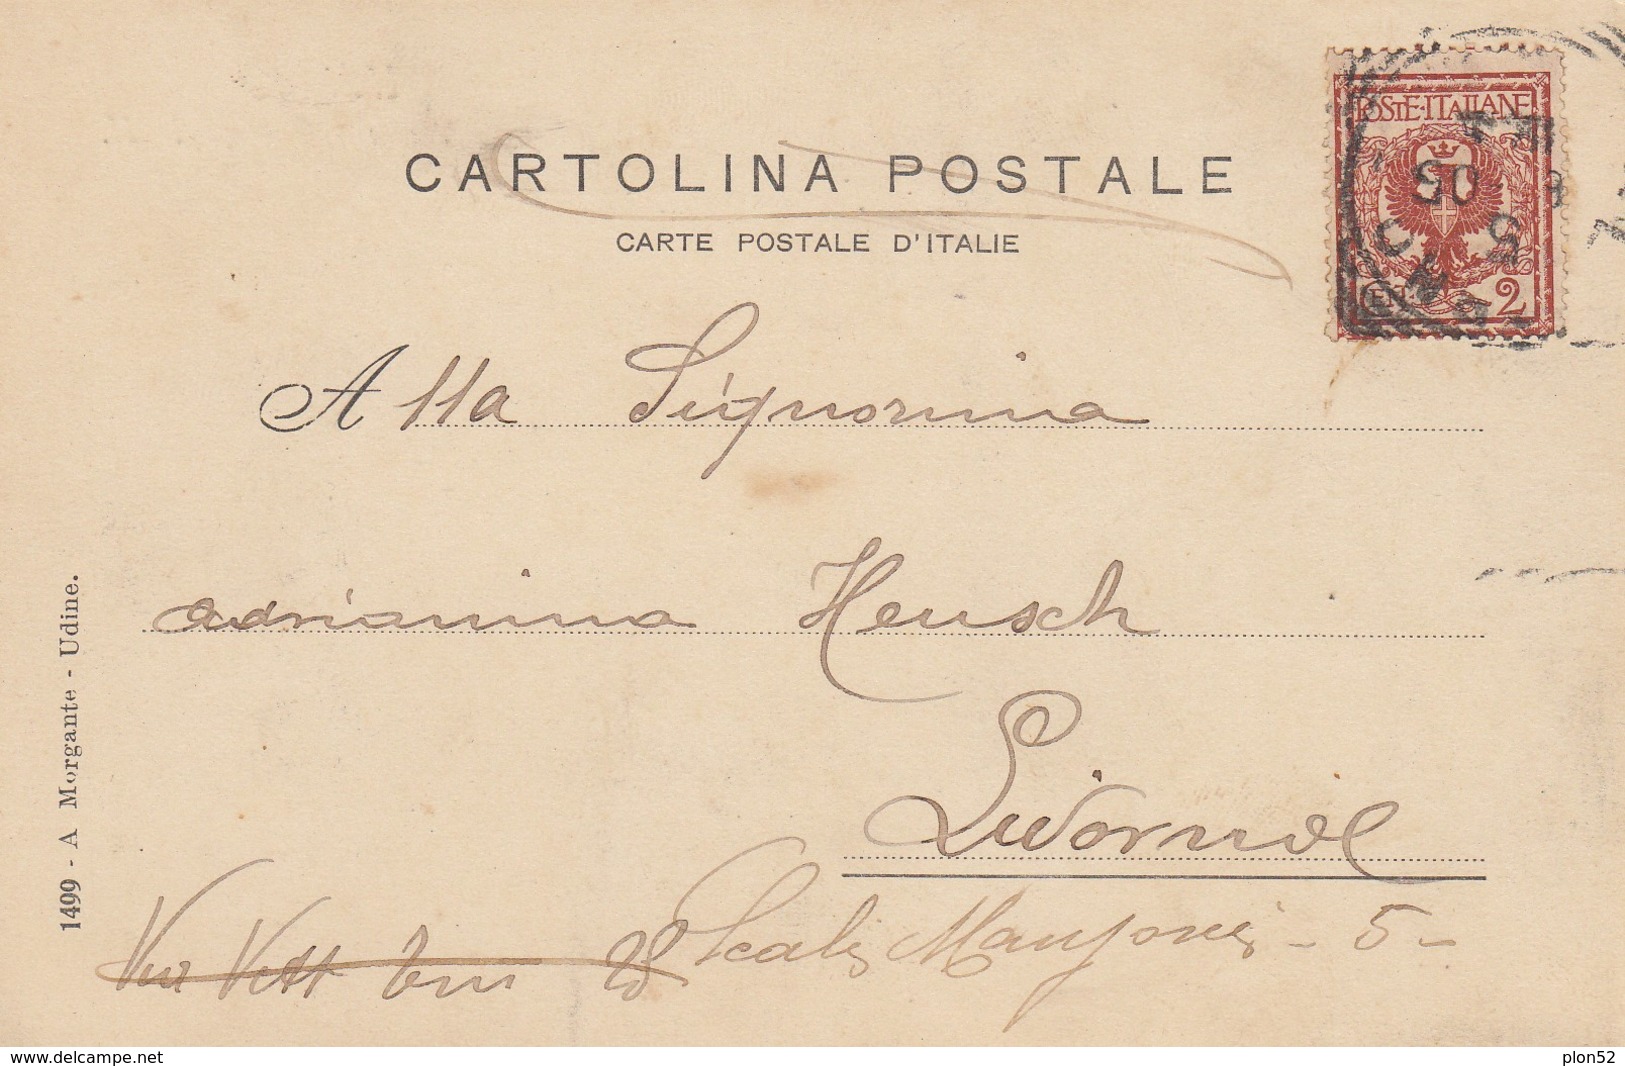 CARTOLINA POSTALE
CARTE POSTALE D'ITALIE
POSTE·ITALIANE
CENT. 2
5
05
Alla Signorina
adrianina Heusch
Livorno
Via Vitt Em 28 Scali Manzoni - 5 -
1499 - A Morgante - Udine.
www.delcampe.net
plon52